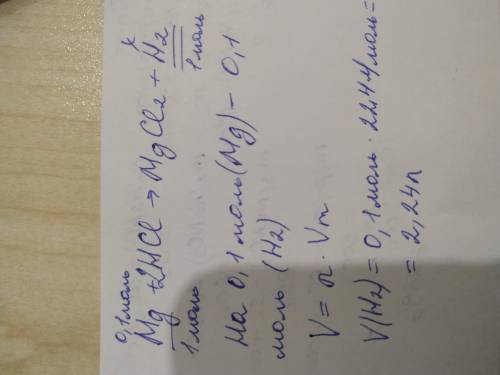 0,1моль x
Mg + 2HCl → MgCl2 + H2
1моль 1моль
На 0,1 моль (Mg) – 0,1
моль (H2)
V = n · Vm
V(H2) = 0,1моль · 22,4л/моль =
= 2,24л